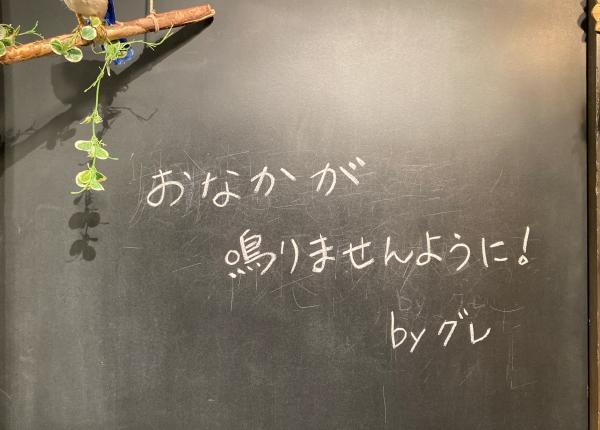 おなかが
鳴りませんように!
byグレ